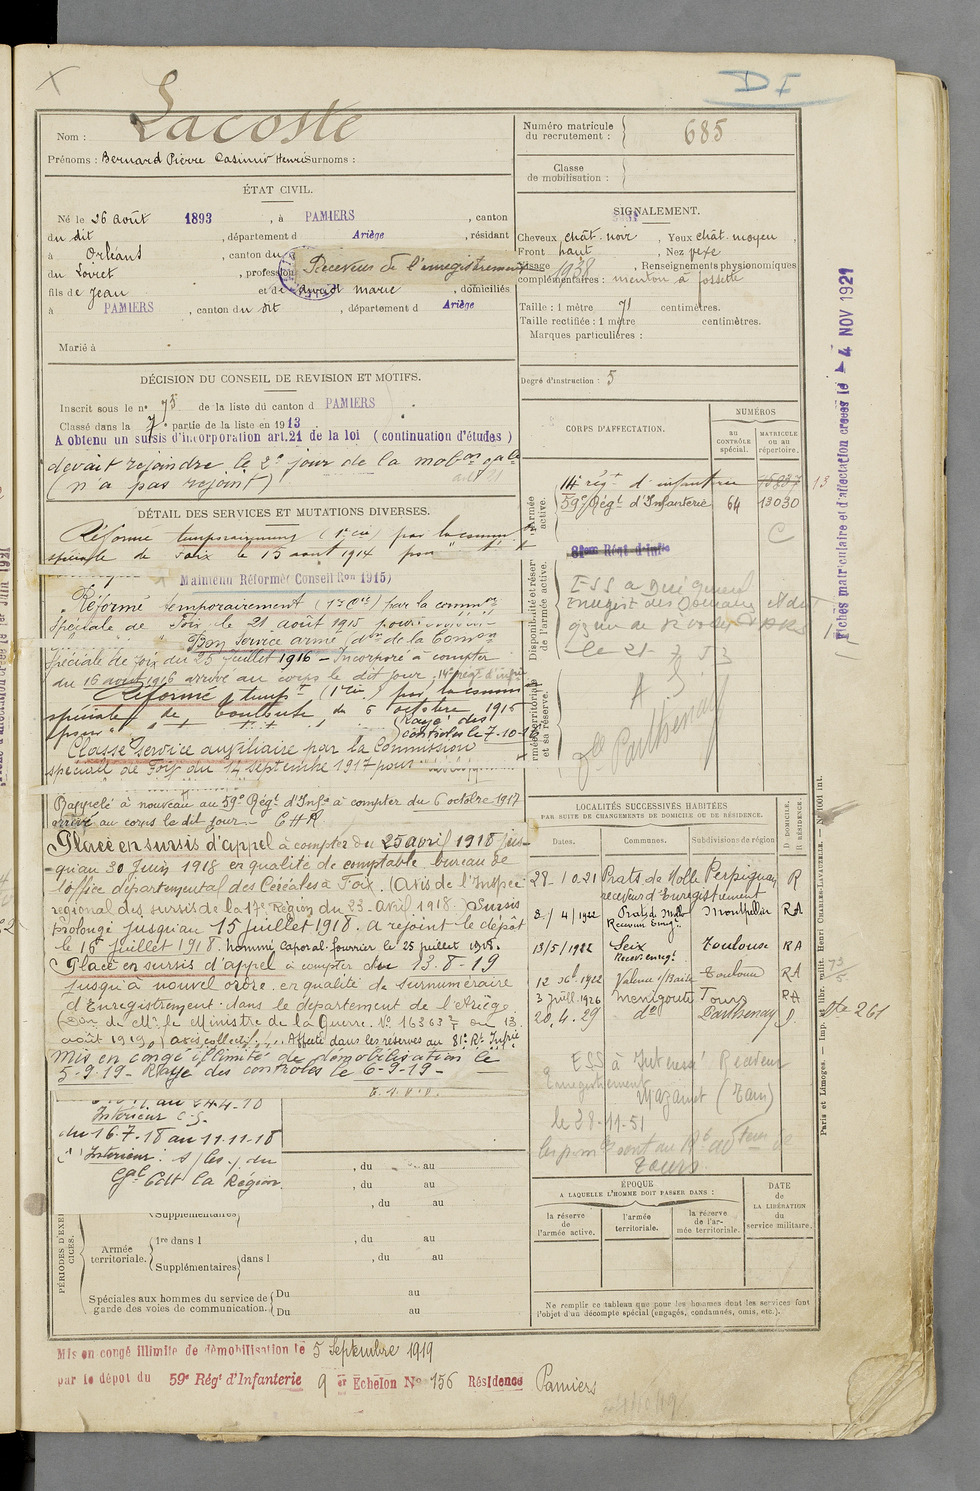 D I
Lacoste
Nom :
Prénoms : Bernard Pierre Casimir Henri Surnoms :
Numéro matricule du recrutement : 685
Classe de mobilisation :
ÉTAT CIVIL.
Né le 26 août 1893, à PAMIERS, canton
du dit, département d Ariège, résidant
à Orléans, canton du
du Loiret, profession Receveur de l'enregistrement
fils de Jean et de marie, domiciliés
à PAMIERS, canton du dit, département d Ariège
Marié à
SIGNALEMENT.
Cheveux chât. noir, Yeux chât. moyen,
Front haut, Nez
Visage 1938, Renseignements physionomiques
complémentaires : menton à fossette
Taille : 1 mètre 71 centimètres.
Taille rectifiée : 1 mètre centimètres.
Marques particulières :
Degré d'instruction : 5
DÉCISION DU CONSEIL DE REVISION ET MOTIFS.
Inscrit sous le n° 75 de la liste du canton d PAMIERS
Classé dans la 7 partie de la liste en 1913
A obtenu un sursis d'incorporation art.21 de la loi (continuation d'études)
devait rejoindre le 2e jour de la mobon gale
(n'a pas rejoint)
DÉTAIL DES SERVICES ET MUTATIONS DIVERSES.
Réformé temporairement (1re cie) par la comm
spéciale de Foix le 13 août 1914 pour
Maintenu Réformé (Conseil Ron 1915)
Réformé temporairement par la common
spéciale de Foix le 21 août 1915 pour
Bon service armé don de la Comon
spéciale de Foix du 25 juillet 1916 - Incorporé à compter
du 16 août 1916 arrivé au corps le dit jour, 14e régt d'infie
Réformé tempt (1re cie) par la comm
spéciale de Toulouse du 6 octobre 1916
(Rayé des
contrôles le 7-10-16
Classé service auxiliaire par la Commission
spéciale de Foix du 14 septembre 1917 pour
Rappelé à nouveau au 59e Régt d'Infie à compter du 6 octobre 1917
arrivé au corps le dit jour -
Placé en sursis d'appel à compter du 25 avril 1918 jus-
qu'au 30 Juin 1918 en qualité de comptable bureau de
l'office départemental des Céréales à Foix. (Avis de l'Inspec
régional des sursis de la 17e Région du 23 - Avril 1918.) Sursis
prolongé jusqu'au 15 juillet 1918. A rejoint le dépôt
le 16 juillet 1918. nommé Caporal-fourrier le 25 juillet 1918.
Placé en sursis d'appel à compter du 13-8-19
jusqu'à nouvel ordre en qualité de surnuméraire
d'Enregistrement dans le département de l'Ariège
de Mr le Ministre de la Guerre. No 16363 du 13
août 1919, (avis collectif). Affecté dans les réserves au 81e Rt Infie
Mis en congé illimité de démobilisation le
5-9-19 - Rayé des contrôles le 6-9-19 -
Intérieur C.S.
du 16-7-18 au 11-11-18
Intérieur :
Gal Cdt la Région.
CORPS D'AFFECTATION.
NUMÉROS
au CONTRÔLE spécial.
MATRICULE ou au répertoire.
Armée active.
14e régt d'infanterie
59e Régt d'Infanterie 64 13030
81eme Régt d'Infie
Disponibilité et réserve de l'armée active.
Armée territoriale et sa réserve.
LOCALITÉS SUCCESSIVES HABITÉES
PAR SUITE DE CHANGEMENTS DE DOMICILE OU DE RÉSIDENCE.
Dates. Communes. Subdivisions de région
D. DOMICILE. R. RÉSIDENCE.
28-10.21 Prats de Mollo Perpignan R
receveur d'Enregistrement
8/4/1922 Prats d Mollo Montpellier RA
13/5/1922 Seix Toulouse RA
Recev. enregt
1922 Valence Toulouse RA
3 juill. 1926 Menigoute Tours RA
20.4.29 do Parthenay
ESS à Receveur
Enregistrement
Mazamet (Tarn)
le 28-11-51
Tours
ÉPOQUE
A LAQUELLE L'HOMME DOIT PASSER DANS :
la réserve de l'armée active.
l'armée territoriale.
la réserve de l'armée territoriale.
DATE de LA LIBÉRATION du service militaire.
Ne remplir ce tableau que pour les hommes dont les services font
l'objet d'un décompte spécial (engagés, condamnés, omis, etc.).
, du au
, du au
, du au
PÉRIODES D'EXERCICES.
(Supplémentaires)
Armée territoriale.
1re dans l , du au
Supplémentaires dans l , du au
Spéciales aux hommes du service de garde des voies de communication.
Du au
Du au
Mis en congé illimité de démobilisation le 5 Septembre 1919
par le dépôt du 59e Régt d'Infanterie 9 Echelon No 156 Résidence Pamiers
Fiches matriculaire et d'affectation créées le - 4 NOV 1921
Paris et Limoges. — Imp. et libr. milit. Henri CHARLES-LAVAUZELLE. — No 1001 int.